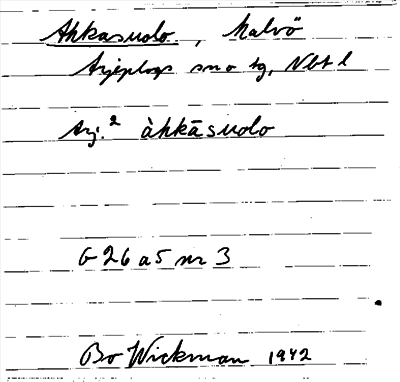 Ahkasuolo, Kalvö
Arjeplogs sn o tg, Nbt l
Arj.² àhkāsuolo
G 26 a 5 nr 3
Bo Wickman 1942